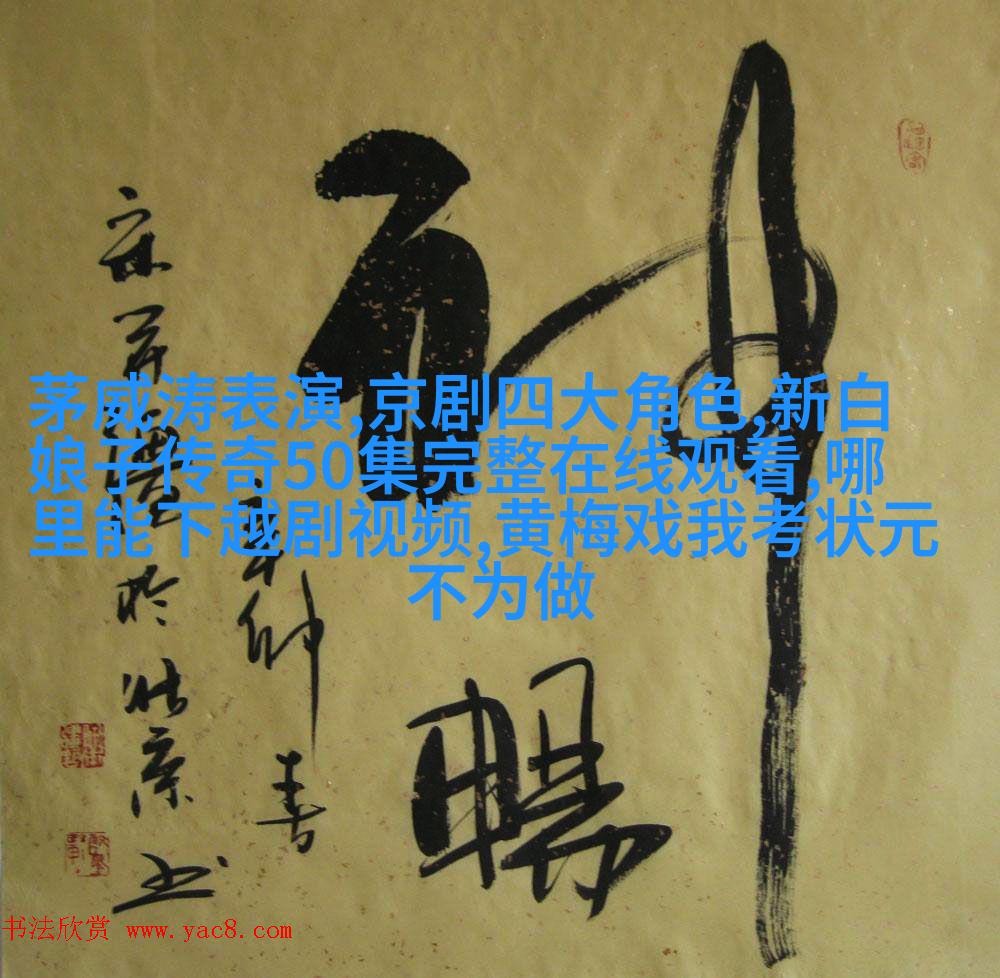 神暢
茅威涛表演,京剧四大角色,新白
娘子传奇50集完整在线观看,哪
里能下越剧视频,黄梅戏我考状元
不为做
春
於北京书
书法欣赏 www.yac8.com